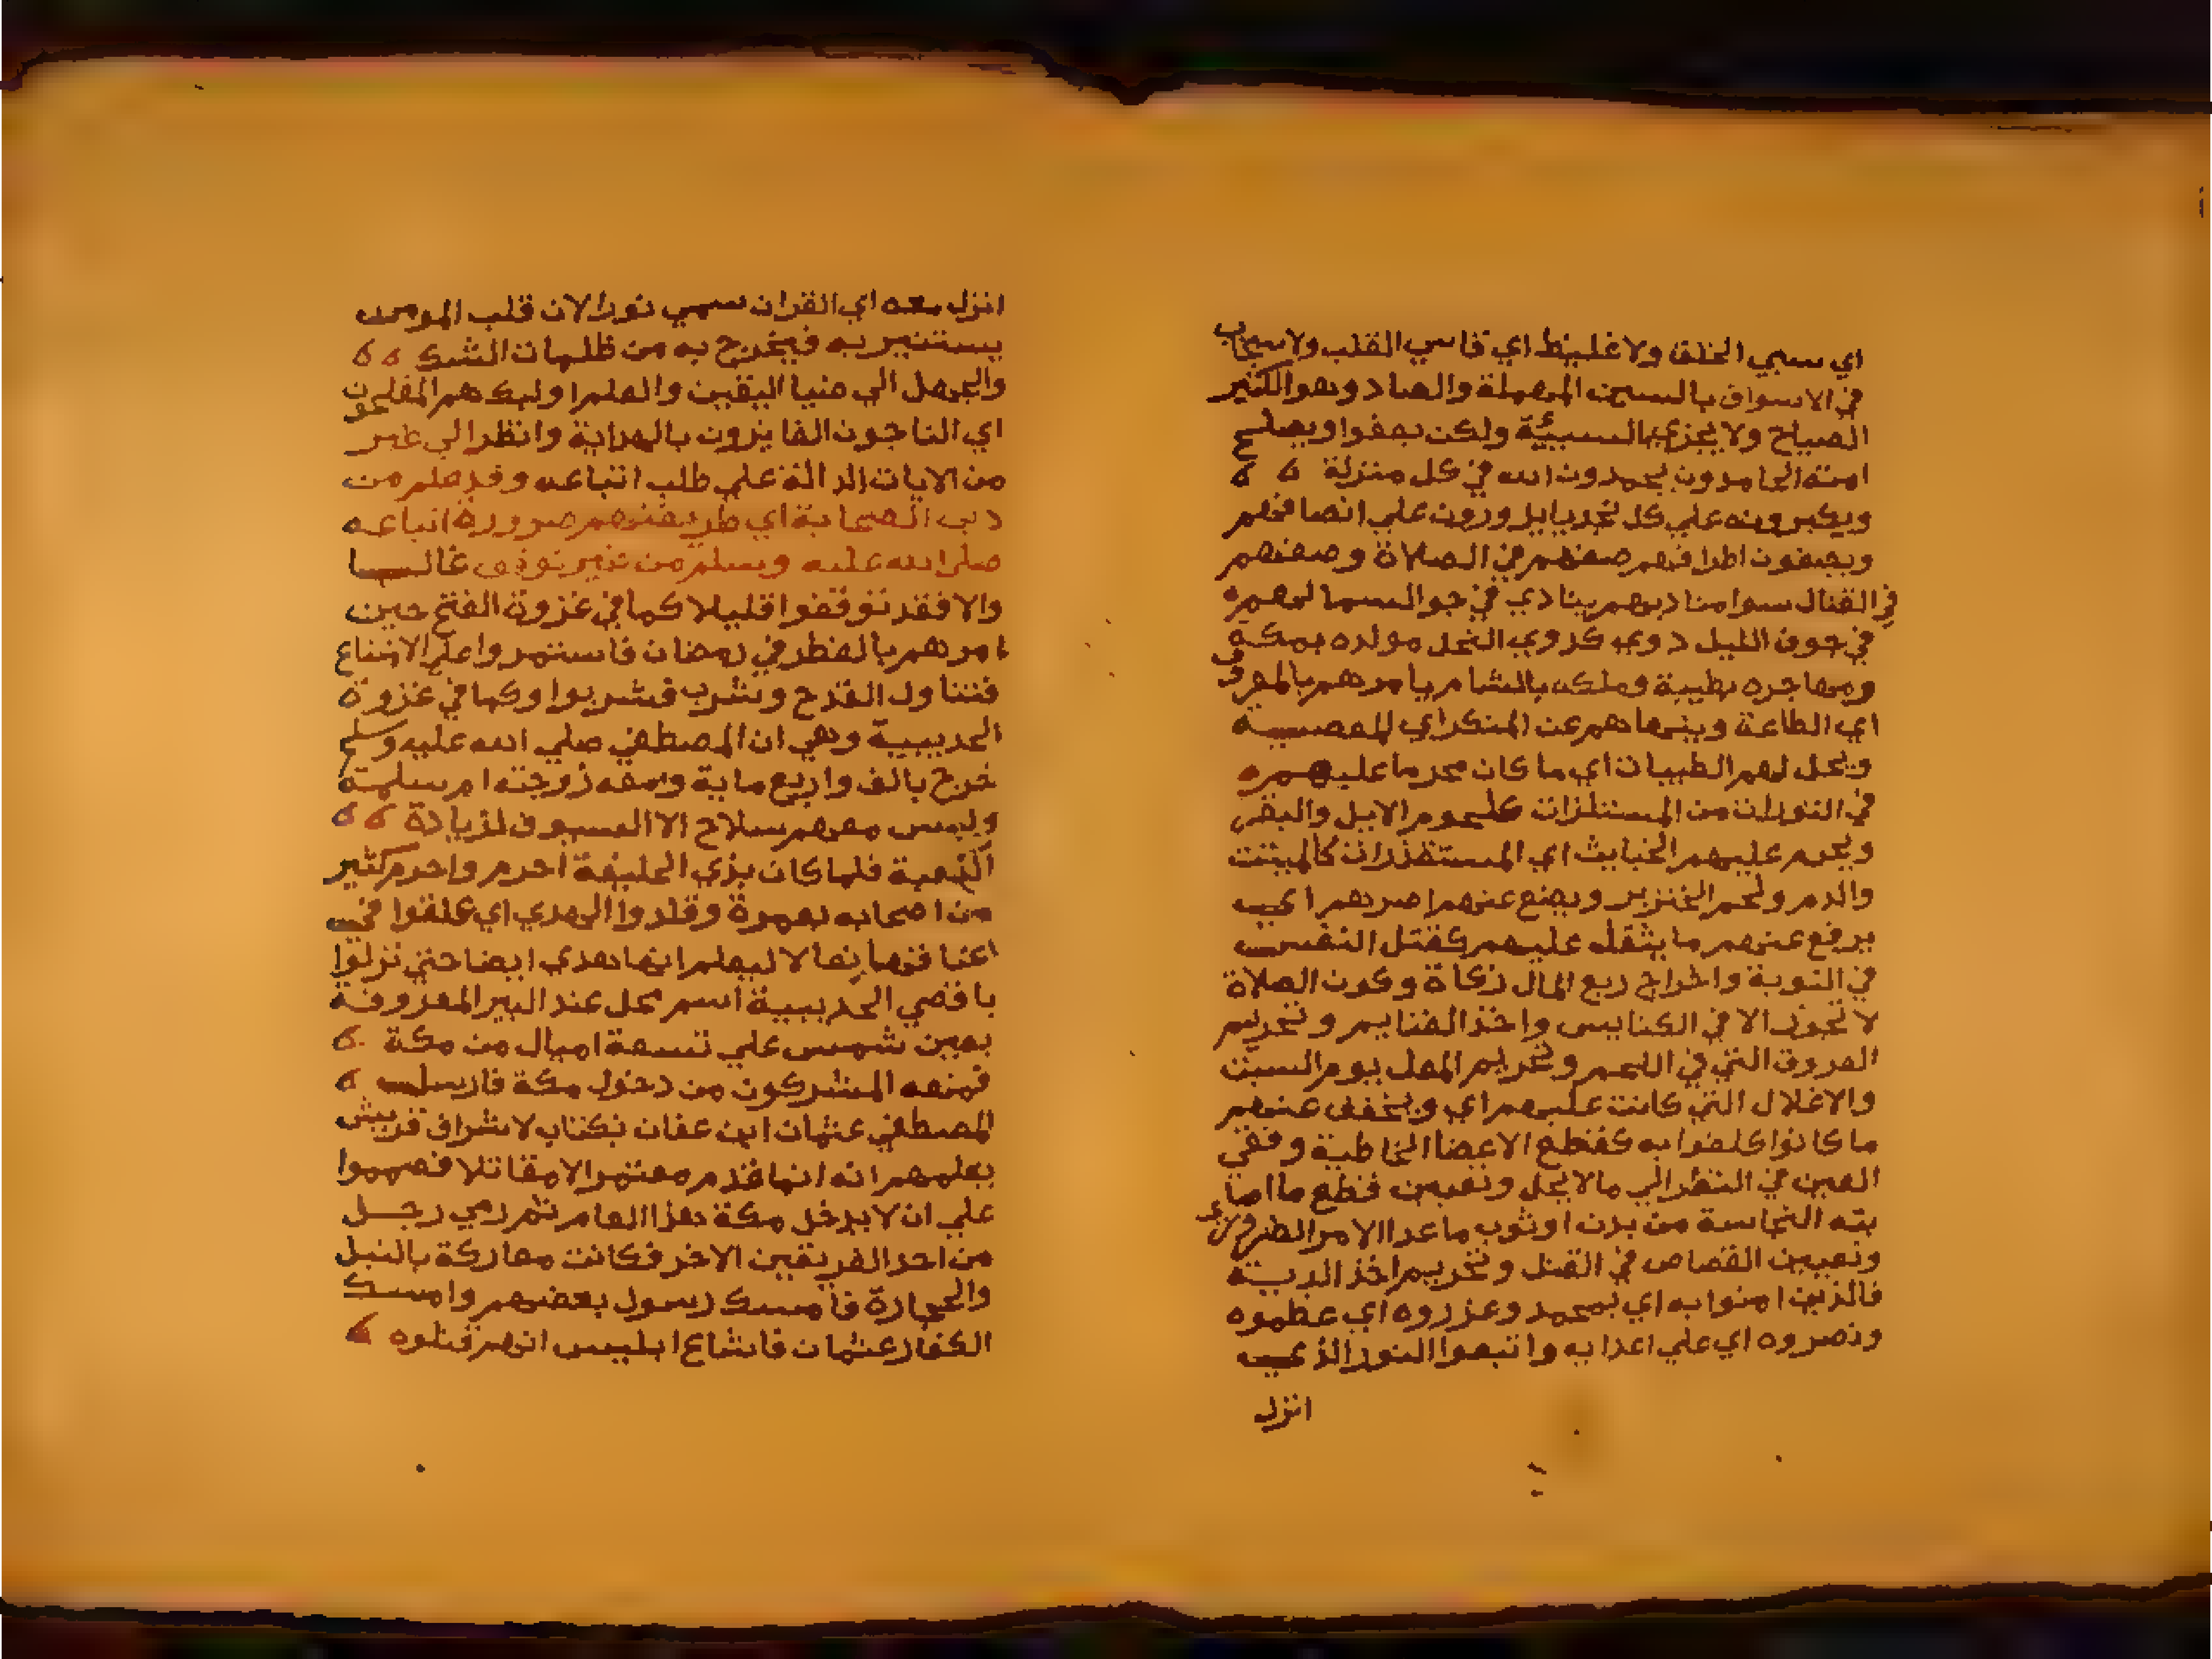 اي سيي الخلق ولا غليظ اي قاسي القلب ولا سخاب
في الاسواق بالسين المهملة والصاد وهو الكثير
الصياح ولا يجزي بالسيئة ولكن يعفوا ويصلح
امته الحامدون يحمدون الله في كل منزلة
ويكبرونه علي كل نجد يابزرون علي انصافهم
ويصفون اطرافهم صفهم في الصلاة وصفهم
في القتال سوا مناديهم ينادي في جو السما لهم
في جوف الليل دوي كدوي النحل مولده بمكه
ومهاجره بطيبة وملكه بالشام يامرهم بالمعروف
اي الطاعة وينهاهم عن المنكر اي المعصية
ويحل لهم الطيبات اي ما كان محرما عليهم
في التوراة من المستلذات كلحوم الابل والبقر
ويحرم عليهم الخبايث اي المستقذرات كالميتت
والدم ولحم الخنزير ويضع عنهم اصرهم اي
يرفع عنهم ما يثقل عليهم كقتل النفس
في التوبة واخراج ربع المال زكاة وكون الصلاة
لا تجوز الا في الكنايس واخذ الغنايم وتحريم
العروق التي في اللحم وتحريم العمل يوم السبت
والاغلال التي كانت عليهم اي ويخفف عنهم
ما كانوا كلفوا به كقطع الاعضا الخاطية وفقي
العين في النظر الي ما لا يحل وتعيين قطع ما اصا
بته النجاسة من بدن او ثوب ما عدا الامر
وتعيين القصاص في القتل وتحريم اخذ الدية
فالذين امنوا به اي بمحمد وعزروه اي عظموه
ونصروه اي علي اعدايه واتبعوا النور الذي
انزل
انزل معه اي القران سمي نورا لان قلب المومن
يستنير به فيخرج به من ظلمات الشك
والجهل الي ضيا اليقين والعلم اوليك هم المفلحون
اي الناجون الفايزون بالهداية وانظر الي غير
من الايات الدالة علي طلب اتباعه وقد علم من
دب الصحابة اي طريقتهم ضرورة اتباعه
صلي الله عليه وسلم من غير توقف غالبا
والا فقد توقفوا قليلا كما في غزوة الفتح حين
امرهم بالفطر في رمضان فاستمروا علي الامتناع
فتناول القدح وشرب فشربوا وكما في غزوة
الحديبية وهي ان المصطفي صلي الله عليه وسلم
خرج بالف واربع ماية ومعه زوجته ام سلمة
وليس معهم سلاح الا السيوف لزيادة
الكعبة فلما كان بذي الحليفة احرم واحرم كثير
من اصحابه بعمرة وقلدوا الهدي اي علقوا في
اعناقها نعالا ليعلم انها هدي ايضا حتي نزلوا
باقصي الحديبية اسم محل عند البير المعروفة
بعين شمس علي تسعة اميال من مكة
فمنعه المشركون من دخول مكة فارسل
المصطفي عثمان ابن عفان بكتاب لاشراف قريش
يعلمهم انه انما قدم معتمرا لا مقاتلا فصمموا
علي ان لا يدخل مكة هذا العام ثم رمي رجل
من احد الفريقين الاخر فكانت معاركة بالنبل
والحجارة فامسك رسول بعضهم وامسك
الكفار عثمان فاشاع ابليس انهم قتلوه